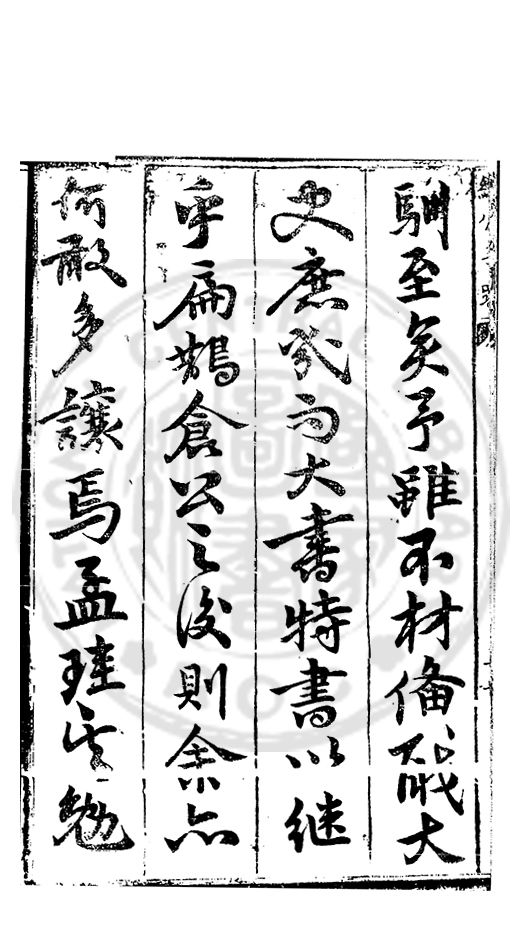 馴至矣予雖不材備職大
史庶幾大書特書以継
乎扁鵲倉公之後則余亦
何敢多讓焉孟其勉